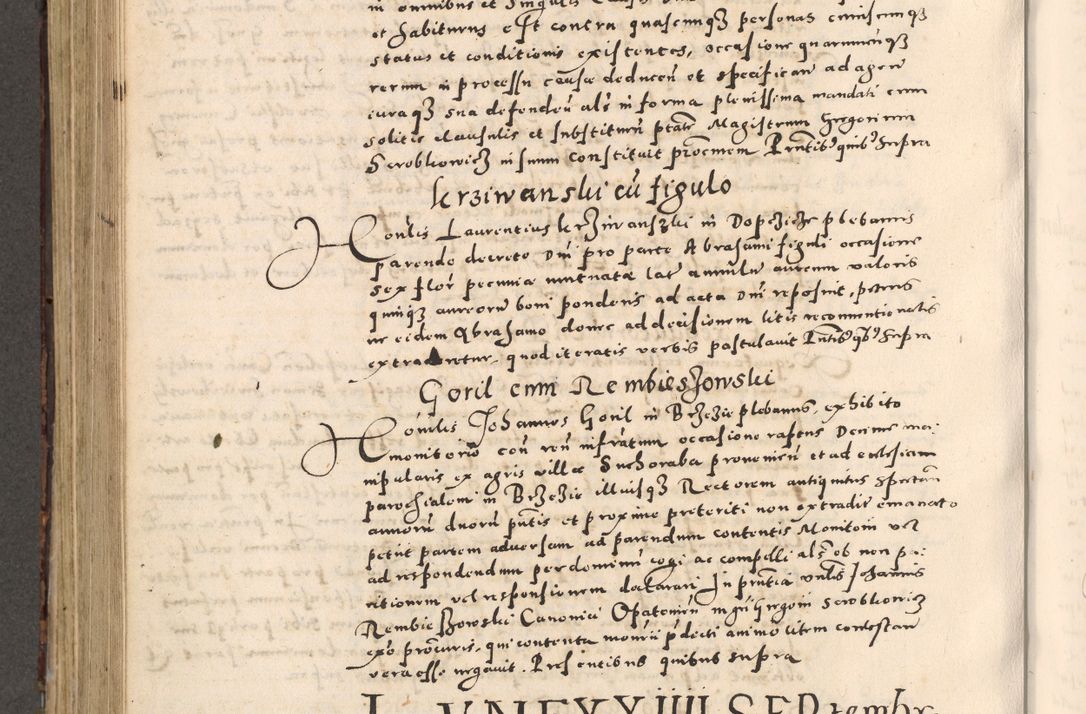 in omnibus et singulis
et habiturus est contra quascunqz personas cuiuscunqz
status et conditionis existentes, occasione quarumcunqz
rerum in processu causae deducen et specifican ad agen
curaqz sua defenden als in forma plenissima mandati cum
solitis clausulis et substituen ptate Magistrum Gregorium
Scrobkowicz in suum constituit procurem Pntibus quibus supra
krziwanski cu figulo
Honlis Laurentius krziwanszki in Dopczicze plebanus
parendo decreto Dni pro parte Abrahami figuli occasione
sex flor pecuniae mutuatae lat annulu aureum valoris
quinqz aureoru boni ponderis ad acta Dni reposuit, petens
ne eidem Abrahamo donec ad decisionem litis reconventionalis
extraderetur, quod iteratis verbis postulavit Pntibus qbus supra
Goril cum Rembieszowski
Honlis Johannes Goril in Brzezie plebanus, exhibito
monitorio con ren infratum occasione raptus Decimae ma:
nipularis ex agris villae Suchoraba provenien et ad ecclesiam
parochialem in Brzezie illiusqz Rectorem antiquitus spectan
annoru duoru pntis et proxime preteriti non extradit emanato
petiit partem adversam ad parendum contentis Monitorii vel
ad respondendum per dominum cogi ac compelli als ob non pa:
ritionem vel responsionem declarari In pntia vnlis Johannis
Rembieszowski Canonici Opatovien mgri Gregorii Scrobkowicz
exo procuris, qui contenta monitorii pdicti animo litem contestan
vera esse negavit. Presentibus quibus supra
LVNE XXIIII SEPtembr